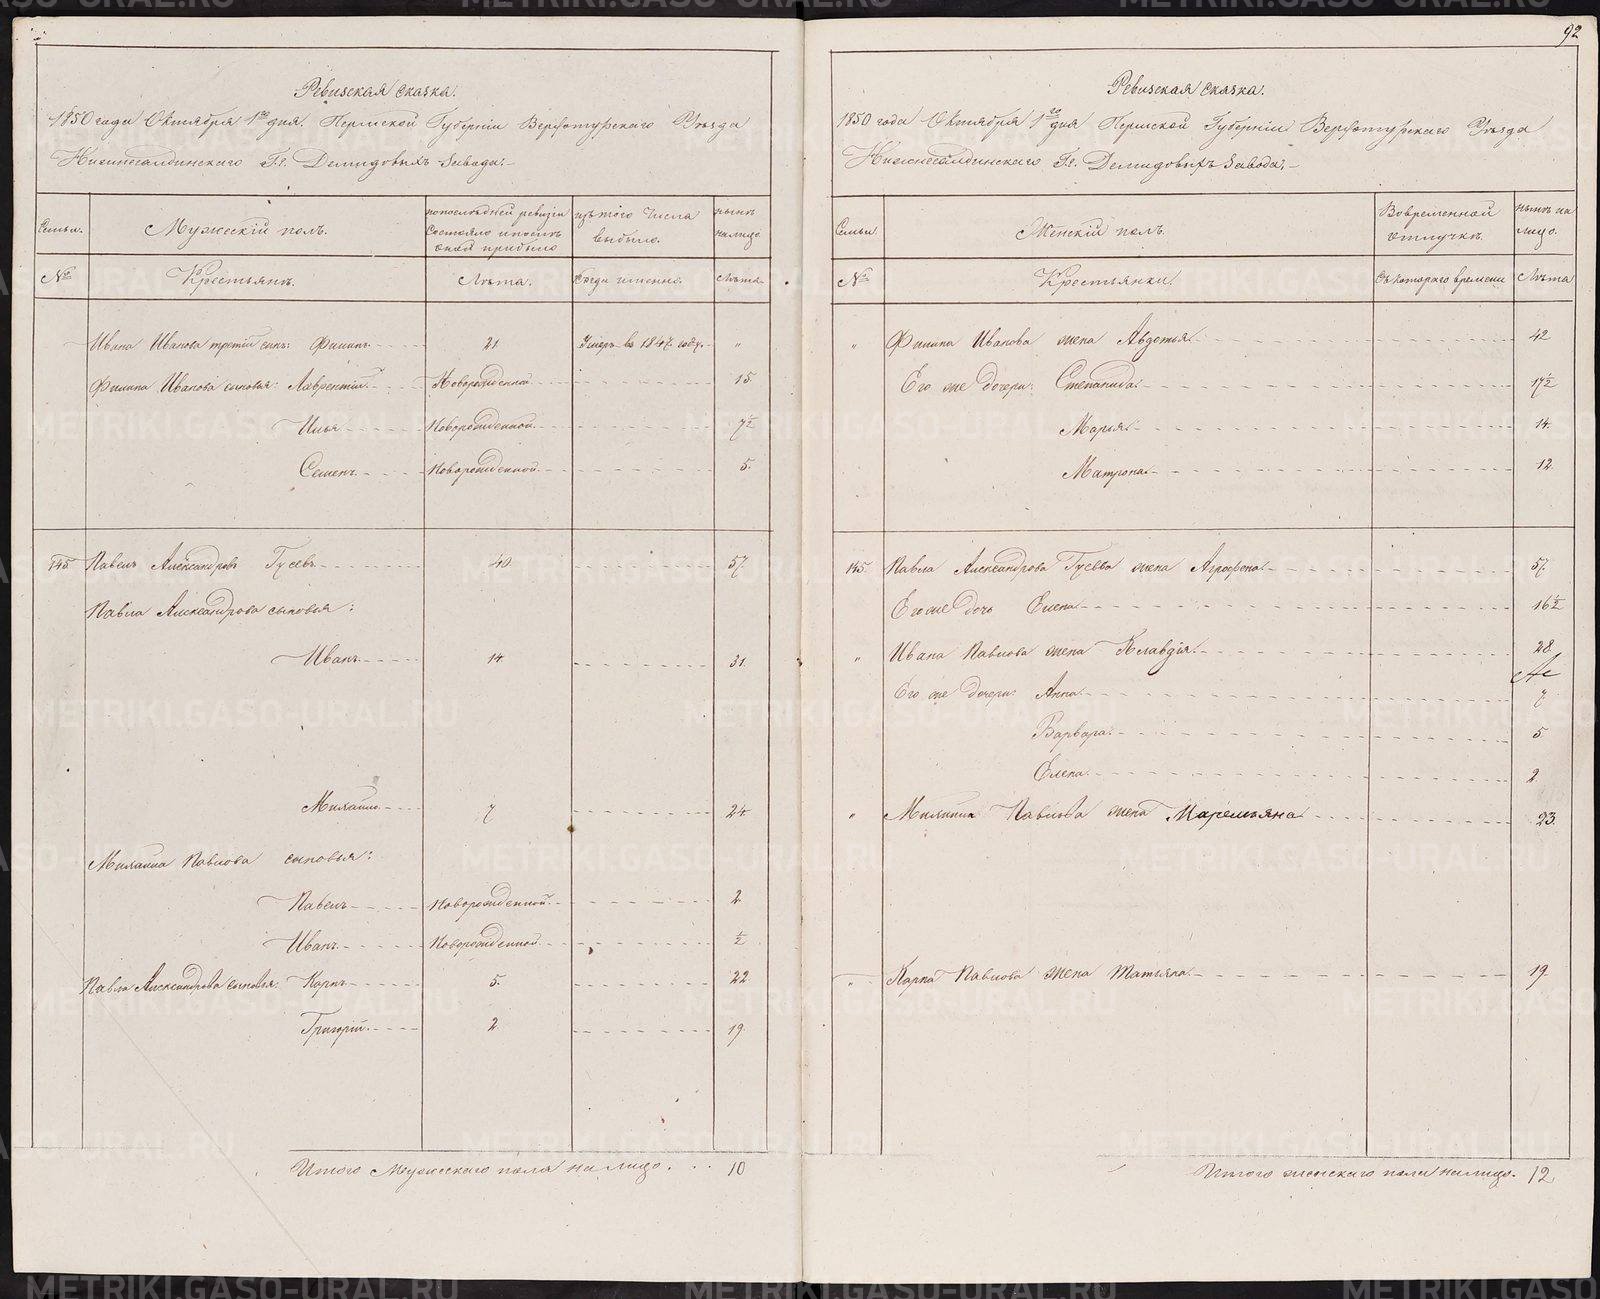 92
Ревизская сказка.
1850 года Октября 1го дня. Пермской Губернии Верхотурскаго Уѣзда
Нижнесалдинскаго Гг. Демидовыхъ Завода.
Семьи. Мужескій полъ. По послѣдней ревизіи состояло и послѣ оной прибыло Изъ того числа выбыло. Нынѣ на лицо.
№ Крестьянъ. Лѣта. Когда именно. Лѣта.
Ивана Иванова третій сынъ: Филипъ. 21 Умеръ въ 1847 году. "
Филипа Иванова сыновья: Лаврентій Новорожденной 15
Илья Новорожденной 7½
Семенъ Новорожденной 5.
145 Павелъ Александровъ Гусевъ 40 57
Павла Александрова сыновья:
Иванъ 14 31
Михаило 7 24
Михаила Павлова сыновья:
Павелъ Новорожденной 2
Иванъ Новорожденной ½
Павла Александрова сыновья: Карпъ 5. 22
Григорій 2 19
Итого Мужескаго пола на лицо. 10
Ревизская сказка.
1850 года Октября 1го дня Пермской Губерніи Верхотурскаго Уѣзда
Нижнесалдинскаго Гг. Демидовыхъ Завода.
Семьи Женскій полъ. Во временной отлучкѣ. Нынѣ на лицо.
№ Крестьянки. Съ котораго времени Лѣта
" Филипа Иванова жена Авдотья 42
Его же дочери: Степанида 17½
Марья 14
Матрона 12
145. Павла Александрова Гусева жена Агрофена 57
Его же дочь Елена 16½
" Ивана Павлова жена Клавдія 28
Его же дочери: Анна 7
Варвара 5
Елена 2
" Михаила Павлова жена Маремьяна 23
" Карпа Павлова жена Татьяна 19
Итого женскаго пола на лицо. 12
METRIKI.GASO-URAL.RU